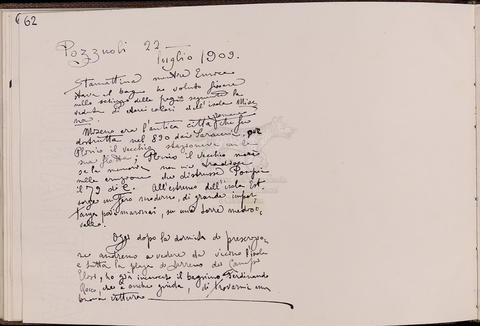 62
Pozzuoli 22
luglio 1909.
Stamattina mentre Enrico
il bagno ho voluto fissare
nello schizzo della pagina seguente la
veduta di colori dell'isola
Miseno era l'antica città romana che fu
distrutta nel 890 dai Saraceni, poi
Plinio il vecchio stazionava con la
sua flotta; Plinio il vecchio morì
se la memoria non mi tradisce
nella eruzione che distrusse Pompei
il 79 d. C. All'estremo dell'isola Est
sorge un faro moderno, di grande impor,
tanza pei marinai, su una torre medioe,
vale.
Oggi dopo la dormita di prescrizio,
ne andremo a vedere da vicino l'isola
e tutta la plaga di terreno dei Campi
Elisi, ho già incaricato il bagnino Ferdinando
che è anche guida, di trovarmi una
buona vettura